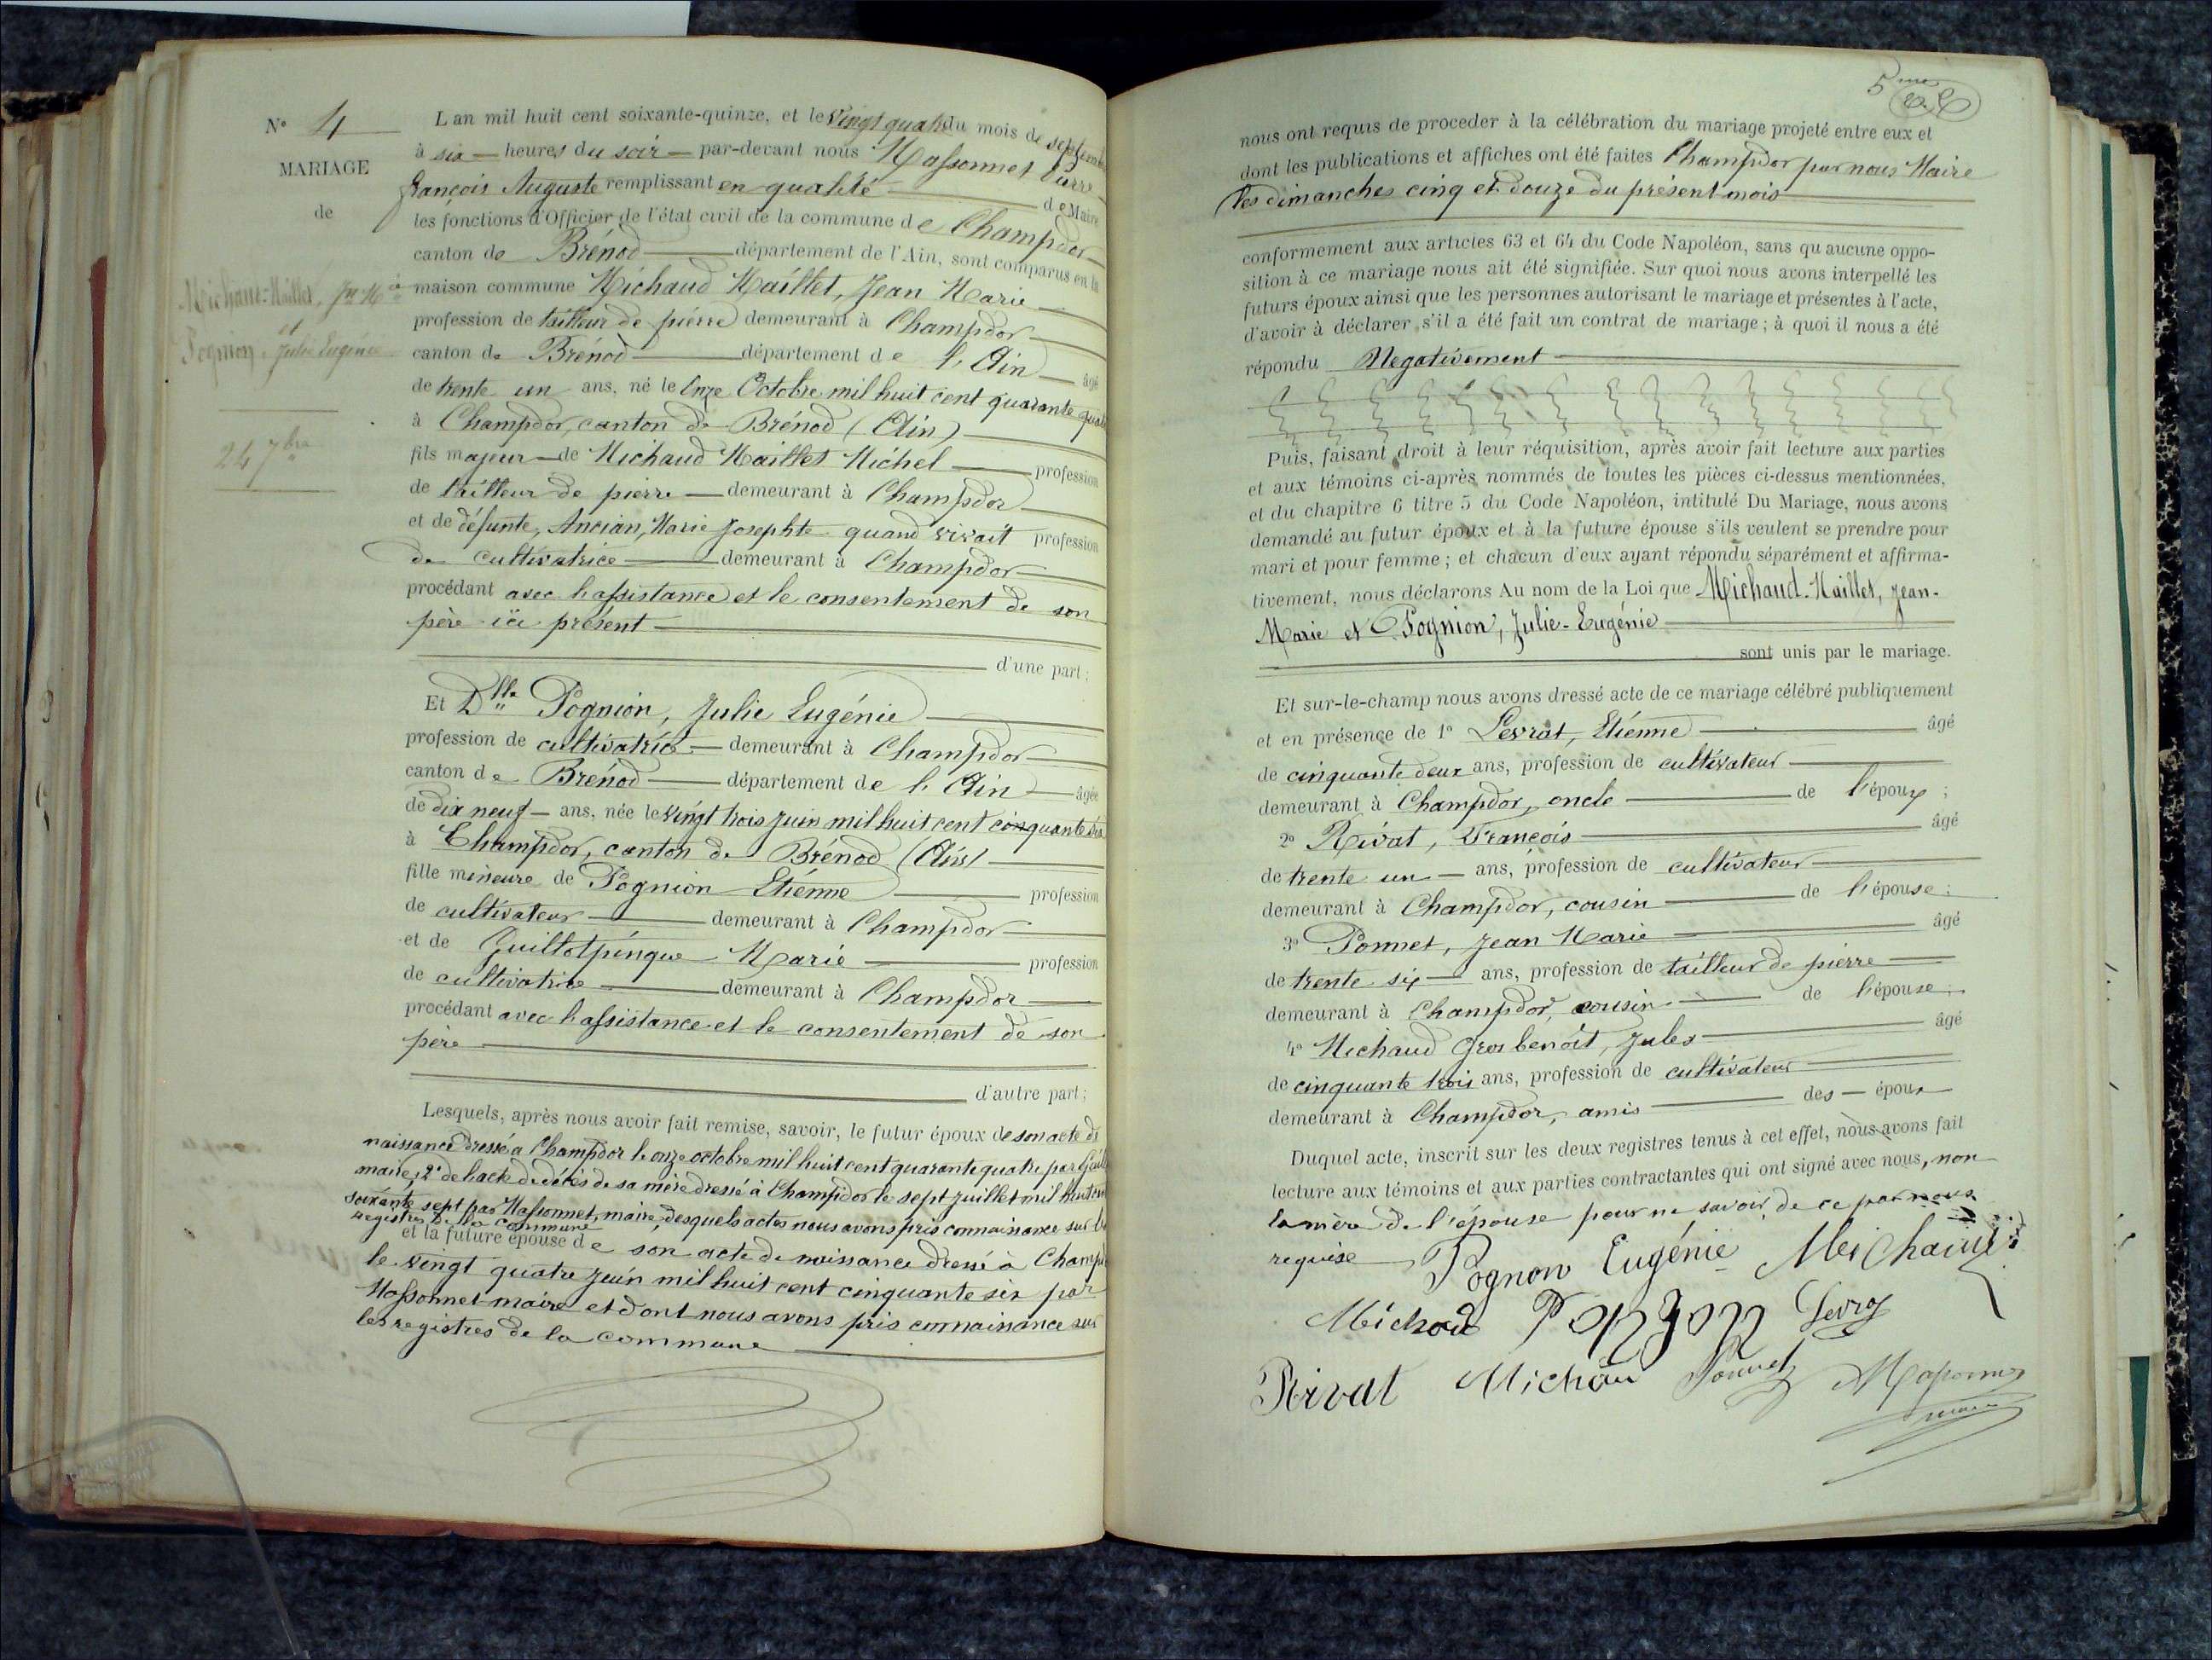 N° 4
MARIAGE
de
Michaud-Maillet, Jn Mie
et
Pognion, Julie Eugénie
24 7bre
L'an mil huit cent soixante-quinze, et le vingt quatre du mois de septembre
à six heures du soir par-devant nous Massonnet Pierre
François Auguste remplissant en qualité de Maire
les fonctions d'Officier de l'état civil de la commune de Champdor
canton de Brénod département de l'Ain, sont comparus en la
maison commune Michaud Maillet, Jean Marie
profession de tailleur de pierre demeurant à Champdor
canton de Brénod département de l'Ain âgé
de trente un ans, né le onze Octobre mil huit cent quarante quatre
à Champdor, canton de Brénod (Ain)
fils majeur de Michaud Maillet Michel profession
de tailleur de pierre demeurant à Champdor
et de défunte, Ancian, Marie Josephte quand vivait profession
de cultivatrice demeurant à Champdor
procédant avec l'assistance et le consentement de son
père ici présent
d'une part;
Et Dlle Pognion, Julie Eugénie
profession de cultivatrice demeurant à Champdor
canton de Brénod département de l'Ain âgée
de dix neuf ans, née le vingt trois juin mil huit cent cinquante six
à Champdor, canton de Brénod (Ain)
fille mineure de Pognion Etienne profession
de cultivateur demeurant à Champdor
et de Guillotpingue Marie profession
de cultivatrice demeurant à Champdor
procédant avec l'assistance et le consentement de son
père
d'autre part;
Lesquels, après nous avoir fait remise, savoir, le futur époux de son acte de
naissance dressé à Champdor le onze octobre mil huit cent quarante quatre par
maire, 2° de l'acte de décès de sa mère dressé à Champdor le sept juillet mil huit cent
soixante sept par Massonnet, maire, desquels actes nous avons pris connaissance sur les
registres de la commune
et la future épouse de son acte de naissance dressé à Champdor
le vingt quatre juin mil huit cent cinquante six par
Massonnet maire et dont nous avons pris connaissance sur
les registres de la commune
5me
nous ont requis de proceder à la célébration du mariage projeté entre eux et
dont les publications et affiches ont été faites Champdor par nous Maire
les dimanches cinq et douze du présent mois
conformement aux articles 63 et 64 du Code Napoléon, sans qu'aucune oppo-
sition à ce mariage nous ait été signifiée. Sur quoi nous avons interpellé les
futurs époux ainsi que les personnes autorisant le mariage et présentes à l'acte,
d'avoir à déclarer s'il a été fait un contrat de mariage; à quoi il nous a été
répondu Négativement
Puis, faisant droit à leur réquisition, après avoir fait lecture aux parties
et aux témoins ci-après nommés de toutes les pièces ci-dessus mentionnées,
et du chapitre 6 titre 5 du Code Napoléon, intitulé Du Mariage, nous avons
demandé au futur époux et à la future épouse s'ils veulent se prendre pour
mari et pour femme; et chacun d'eux ayant répondu séparément et affirma-
tivement, nous déclarons Au nom de la Loi que Michaud-Maillet, Jean-
Marie et Pognion, Julie-Eugénie
sont unis par le mariage.
Et sur-le-champ nous avons dressé acte de ce mariage célébré publiquement
et en présence de 1° Levrat, Etienne âgé
de cinquante deux ans, profession de cultivateur
demeurant à Champdor, oncle de l'époux;
2° Rivat, François âgé
de trente un ans, profession de cultivateur
demeurant à Champdor, cousin de l'épouse;
3° Ponnet, Jean Marie âgé
de trente six ans, profession de tailleur de pierre
demeurant à Champdor, cousin de l'épouse;
4° Michaud Gros benoît, Jules âgé
de cinquante trois ans, profession de cultivateur
demeurant à Champdor, amis des époux
Duquel acte, inscrit sur les deux registres tenus à cet effet, nous avons fait
lecture aux témoins et aux parties contractantes qui ont signé avec nous, non
la mère de l'épouse pour ne savoir, de ce par nous
requise Pognon Eugénie Michaud
Michaud Ponjon Levrat
Rivat Michau Ponnet Massonnet
maire